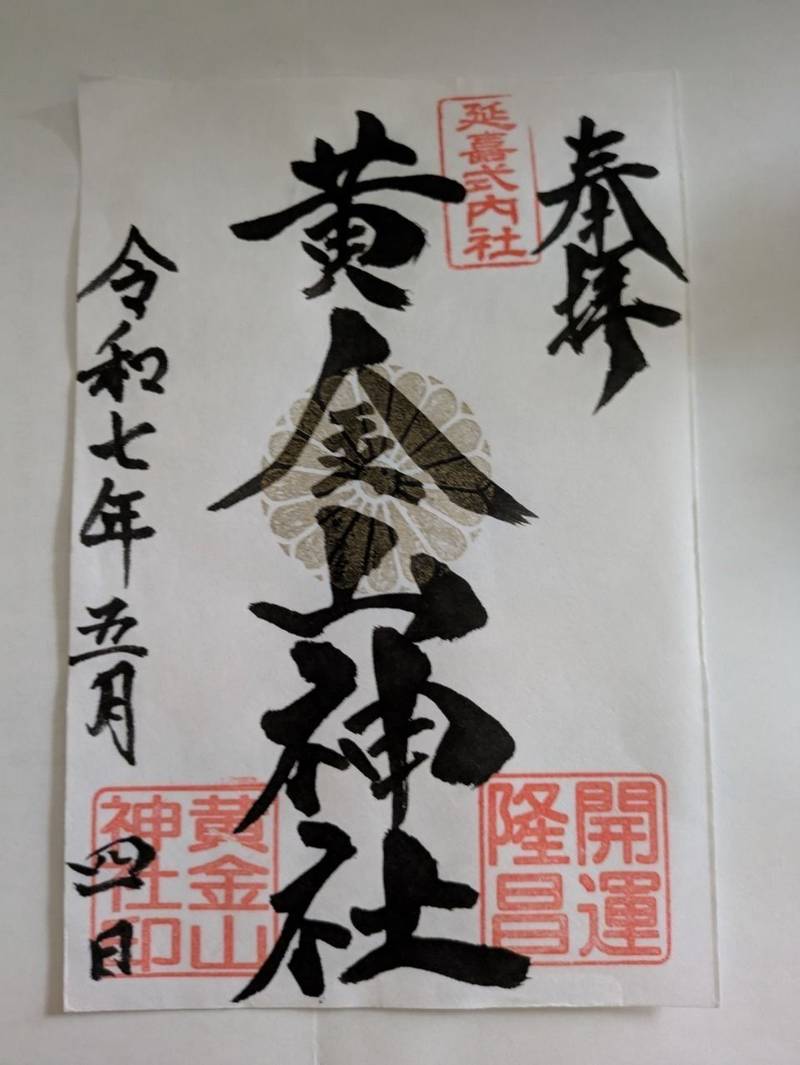 奉拝
延喜式内社
黄金山神社
開運
隆昌
黄金山
神社印
令和七年五月四日